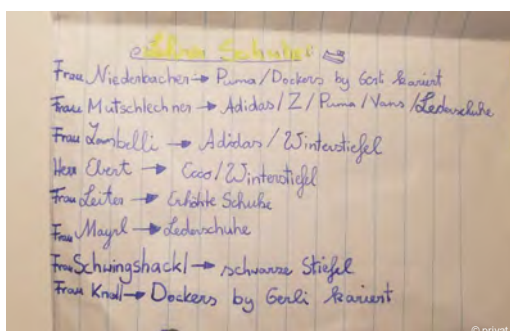 Lehrer Schuhe:
Frau Niederbacher → Puma/Dockers by Gerli kariert
Frau Mutschlechner → Adidas/Z/Puma/Vans/Lederschuhe
Frau Zambelli → Adidas/Winterstiefel
Herr Ebert → Ecco/Winterstiefel
Frau Leiter → Erhöhte Schuhe
Frau Mayrl → Lederschuhe
Frau Schwingshackl → schwarze Stiefel
Frau Knoll → Dockers by Gerli kariert
© privat